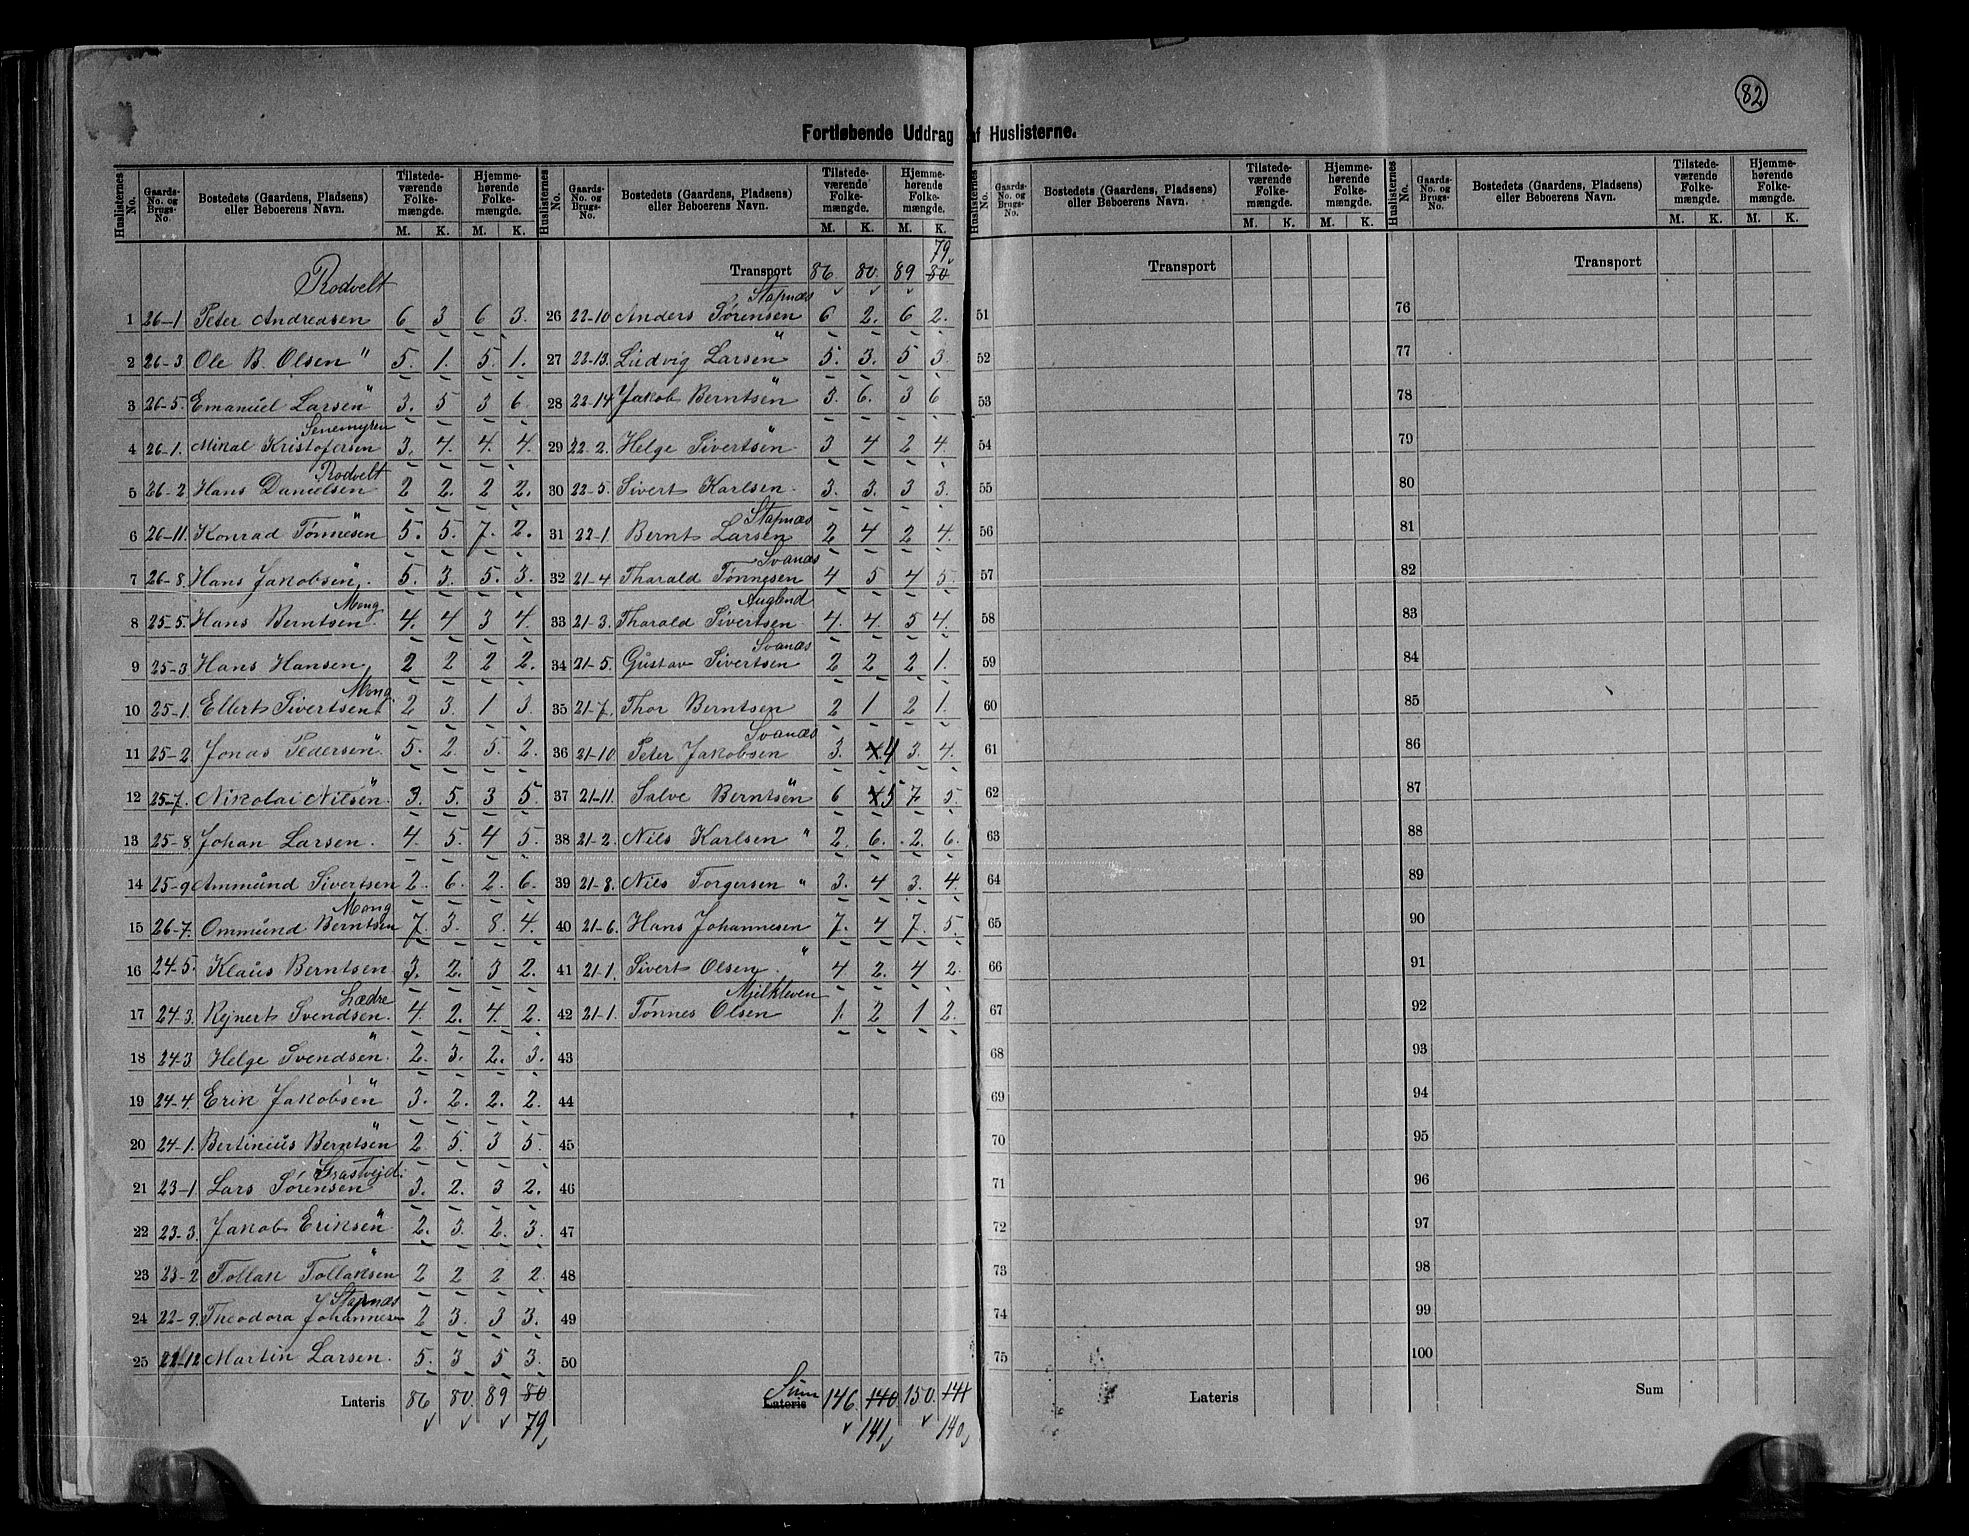 82
Fortløbende Uddrag af Huslisterne.
Huslisternes No. | Gaards-No. og Brugs-No. | Bostedets (Gaardens, Pladsens) eller Beboerens Navn. | Tilstede-værende Folke-mængde. M. K. | Hjemme-hørende Folke-mængde. M. K.
Rodvelt
1 26-1 Peter Andreasen 6 3 6 3.
2 26-3 Ole B. Olsen " 5. 1. 5. 1.
3 26-5. Emanuel Larsen " 3. 5 3 6.
Senemyren
4 26-1. Mikal Kristofersen 3. 4. 4. 4.
Rodvelt
5 26-2 Hans Danielsen 2 2. 2 2.
6 26-11. Konrad Tønnesen 5. 5. 7. 2.
7 26-8. Hans Jakobsen " 5. 3. 5. 3.
Mong
8 25-5. Hans Berntsen 4. 4 3 4.
9 25-3 Hans Hansen 2 2 2 2.
Mong
10 25-1. Ellert Sivertsen 2 3. 1 3.
11 25-2. Jonas Pedersen " 5. 2. 5. 2.
12 25-7. Nikolai Nilsen " 3. 5. 3 5.
13 25-8. Johan Larsen. 4. 5. 4 5.
14 25-9 Ammund Sivertsen 2. 6. 2. 6.
Mong
15 26-7. Ommund Berntsen 7. 3. 8. 4.
16 24-5. Klaus Berntsen 3. 2. 3 2.
Lædre
17 24-3. Rejnert Svendsen. 4. 2. 4. 2.
18 24-3 Helge Svendsen " 2. 3. 2. 3.
19 24-4. Erik Jakobsen " 3. 2. 2. 2.
20 24-1. Bertineus Berntsen 2. 5. 3 5.
Grastvejd.
21 23-1. Lars Sørensen 3. 2. 3 2.
22 23-3. Jakob Eriksen " 2. 3. 2. 3.
23 23-2 Tollak Tollaksen " 2 2 2 2.
Stapnæs
24 22-9. Theodora Johannesen 2 3. 3 3.
25 22-12 Martin Larsen. 5. 3 5 3.
Lateris 86 80. 89 80
79
79
Transport 86. 80. 89 80
Stapnæs
26 22-10 Anders Sørensen 6 2. 6 2.
27 22-13. Ludvig Larsen " 5. 3. 5 3.
28 22-14 Jakob Berntsen " 3. 6. 3 6
29 22-2. Helge Sivertsen " 3 4 2 4.
30 22-5. Sivert Karlsen. 3. 3. 3 3.
Stapnæs
31 22-1 Bernt Larsen 2 4 2 4.
Svanæs
32 21-4 Tharald Tønnesen 4 5 4 5.
Auglend
33 21-3. Tharald Sivertsen 4. 4. 5 4.
Svanæs
34 21-5. Gustav Sivertsen 2 2 2 1.
35 21-7. Thor Berntsen 2 1 2 1.
Svanæs
36 21-10. Peter Jakobsen 3. 4 3. 4.
37 21-11. Salve Berntsen " 6 5 7. 5.
38 21-2. Nils Karlsen " 2. 6. 2. 6.
39 21-8. Nils Torgersen " 3. 4 3. 4.
40 21-6. Hans Johannesen 7. 4 7. 5.
41 21-1. Sivert Olsen " 4 2. 4 2.
Mjelkleven
42 21-1. Tønnes Olsen 1. 2 1 2.
43
44
45
46
47
48
49
50
Sum
Lateris 146. 140 150. 141
141 140
Huslisternes No. | Gaards-No. og Brugs-No. | Bostedets (Gaardens, Pladsens) eller Beboerens Navn. | Tilstede-værende Folke-mængde. M. K. | Hjemme-hørende Folke-mængde. M. K.
Transport
51
52
53
54
55
56
57
58
59
60
61
62
63
64
65
66
67
68
69
70
71
72
73
74
75
Lateris
Transport
76
77
78
79
80
81
82
83
84
85
86
87
88
89
90
91
92
93
94
95
96
97
98
99
100
Sum